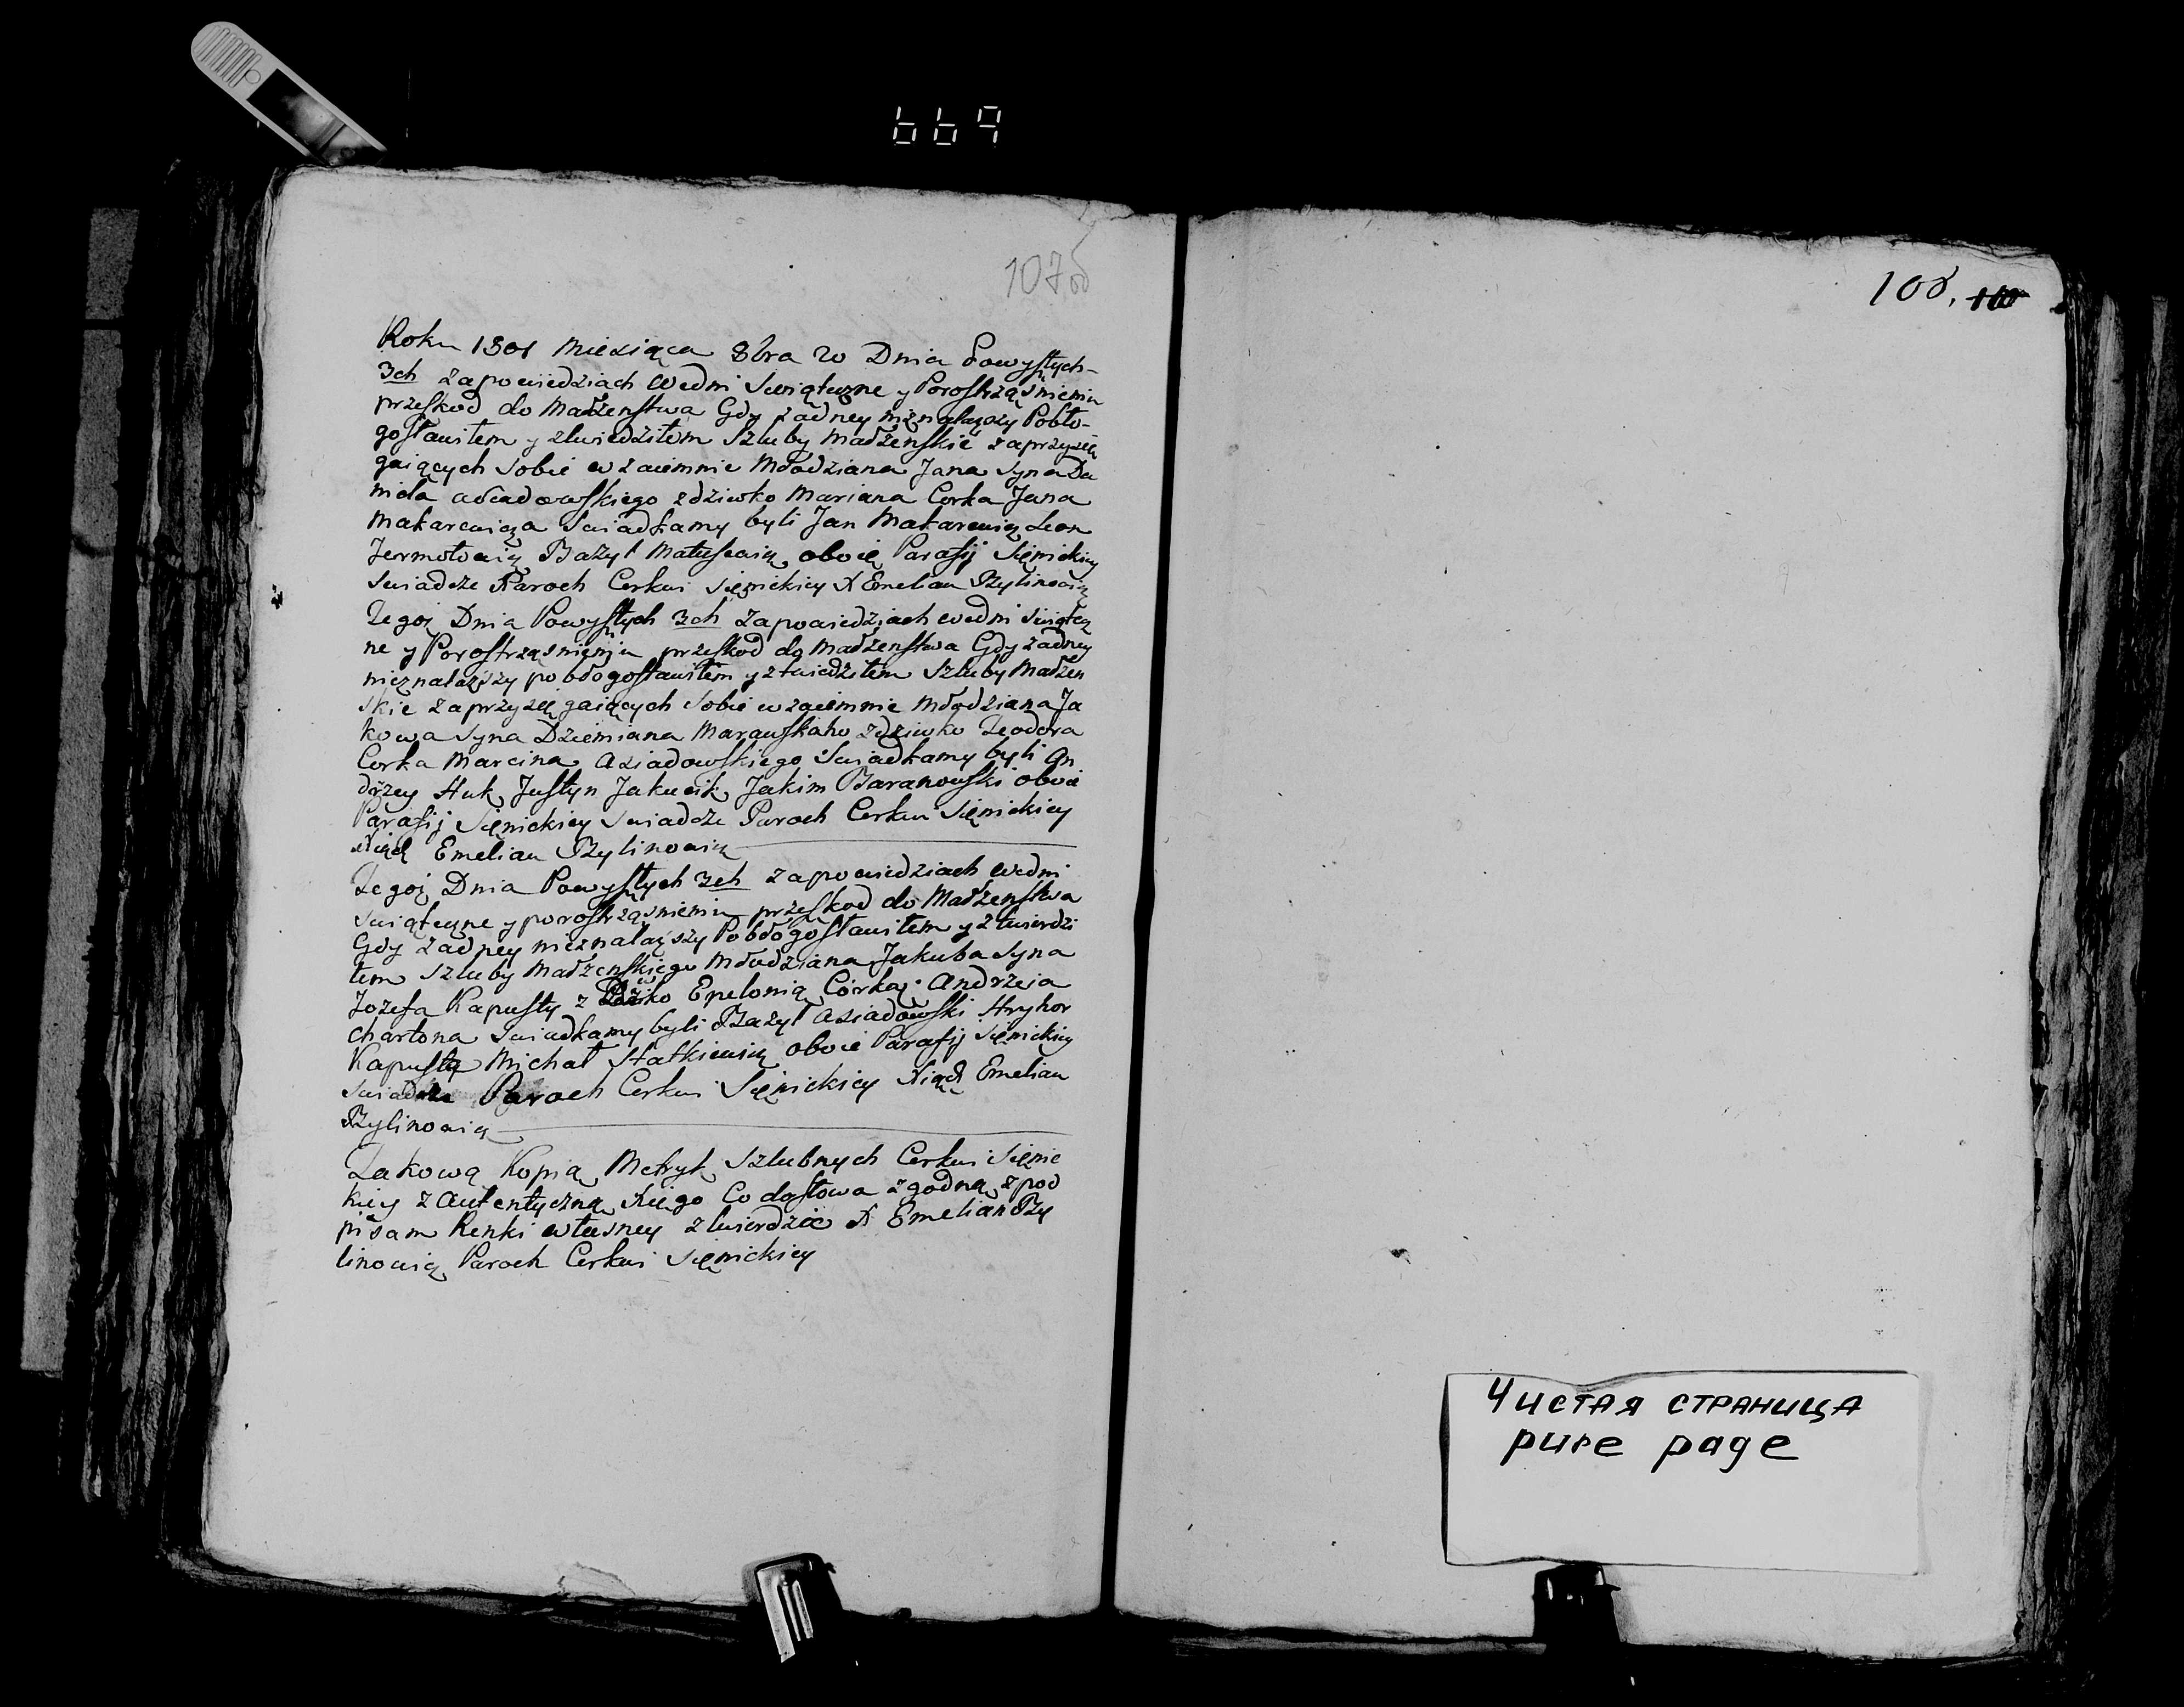 669
107об
108. 110
Roku 1801 Miesiąca 8bra 20 Dnia Powyszłych
3ch zapowiedziach wedni Swiąteczne y Porostrząsnieniu
przeskod do Małżenstwa Gdy żadney nieznalazszy Pobło-
gosławiłem y ztwiedziłem Szluby Małżenskie zaprzysię
gaiących Sobie wzaiemnie Młodziana Jana Syna Da
niela aсiadowskiego zdziwko Mariana Corka Jana
Makarewicza Swiadkamy byli Jan Makarewicz Leon
Jermołowicz Bazyl Matusewicz oboie Parafij Sięnickiey
Swiadcze Paroch Cerkwi Sięnickiey X Emelian Bylinowicz
Tegoż Dnia Powyszłych 3ch Zapowiedziach wedni Swiątecz
ne y Porostrząsnieniu przeskod do Małżenstwa Gdy żadney
nieznalazszy pobłogosławiłem y ztwiedziłem Szluby Małżen
skie Zaprzysięgaiących Sobie wzaiemnie Młodziana Ja
kowa Syna Dziemiana Marawskaho zdziwko Teodora
Corka Marcina Asiadowskiego Swiadkamy byli An
drzey Huk Justyn Jakucik Jakim Baranowski oboie
Parafij Sięnickiey Swiadcze Paroch Cerkwi Sięnickiey
Xiądz Emelian Bylinowicz
Tegoż Dnia Powyszłych 3ch Zapowiedziach wedni
Swiąteczne y porostrząsnieniu przeskod do Małżenstwa
Gdy żadney nieznalazszy Pobłogosławiłem y ztwierdzi
łem Szluby Małżenskiego Młodziana Jakuba Syna
Jozefa Kapusty z Dziwko Epelonią Córką Andrzeia
Chartona Swiadkamy byli Bazyl Asiadowski Hryhor
Kapusta Michał Statkiewicz oboie Parafij Sięnickiey
Swiadcze Paroch Cerkwi Sięnickiey Xiądz Emelian
Bylinowicz
Takową Kopią Metryk Szlubnych Cerkwi Sięnic
kiey z Autentyczną Xięgo Co dosłowa zgodną z pod
pisam Renki własney ztwierdzić X Emelian By
linowicz Paroch Cerkwi Sięnickiey
Чистая страница
pure page